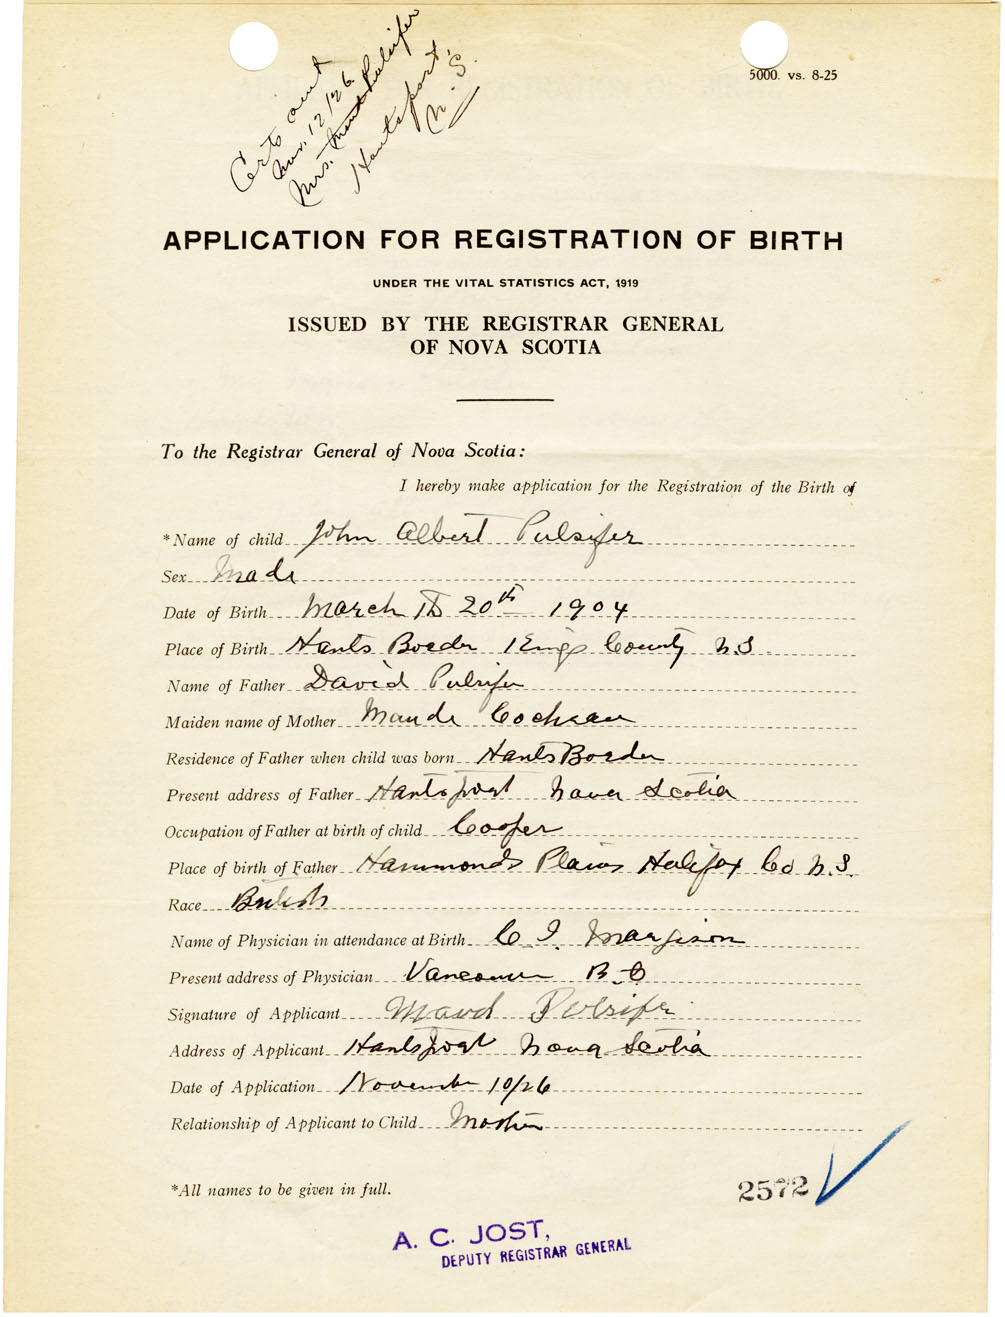 Certs sent
Nov. 12/26
Mrs. Maud Pulsifer
Hantsport,
N. S.
5000. vs. 8-25
APPLICATION FOR REGISTRATION OF BIRTH
UNDER THE VITAL STATISTICS ACT, 1919
ISSUED BY THE REGISTRAR GENERAL
OF NOVA SCOTIA
To the Registrar General of Nova Scotia:
I hereby make application for the Registration of the Birth of
*Name of child John Albert Pulsifer
Sex Male
Date of Birth March 20th 1904
Place of Birth Hants Border Kings County N.S
Name of Father David Pulsifer
Maiden name of Mother Maude Cochran
Residence of Father when child was born Hants Border
Present address of Father Hantsport Nova Scotia
Occupation of Father at birth of child Cooper
Place of birth of Father Hammonds Plains Halifax Co N.S.
Race British
Name of Physician in attendance at Birth C. I. Margison
Present address of Physician Vancouver B-C
Signature of Applicant Maud Pulsifer
Address of Applicant Hantsport Nova Scotia
Date of Application November 10/26
Relationship of Applicant to Child Mother
*All names to be given in full.
2572
A. C. JOST,
DEPUTY REGISTRAR GENERAL